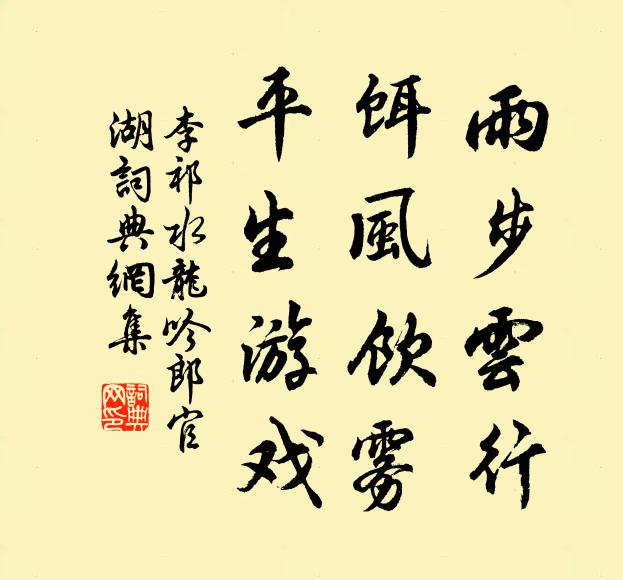 雨步雲行
餌風飲雾
平生游戏
李祁水龍吟郎官
湖詞典網集
詞典网印